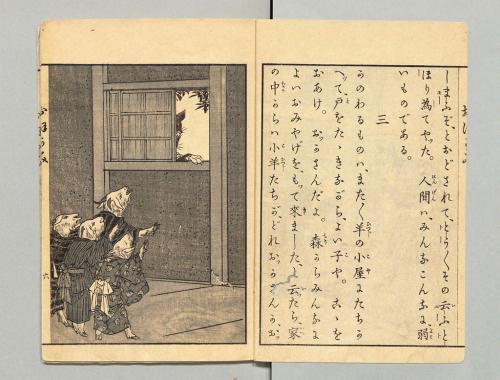 しまふぞ、とおどされて、とう〳〵その云ふと
ほり為てやつた。人間は、みんなこんなに弱
いものである。
三
わるものは、また〳〵羊の小屋にたちか
へつて、戸をたゝきながら、よい子や。こゝを
おあけ。おつかさんだよ。森からみんなに
よいおみやげを、もつて來ました、と云つたら、家
の中から小羊たちが、どれおつかさんかお、
六